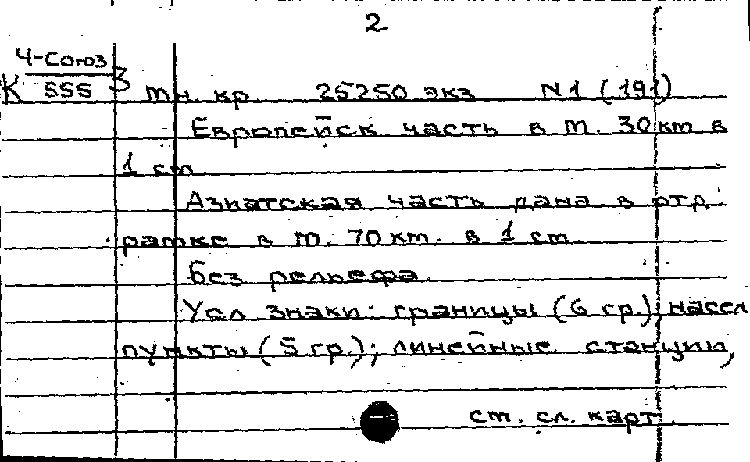 2
4-Союз
К 555 3 тн. кр. 25250 экз N1 (191)
Европейск часть в м. 30 км в
1 см
Азиатская часть дана в отд.
рамке в м. 70 км. в 1 см
без рельефа.
Усл знаки: границы (6 гр.); насел
пункты (5 гр.); линейные станции,
ст. сл. карт.